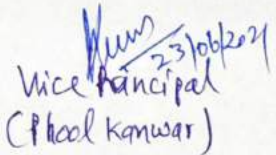 23/06/2021
Vice Principal
(Phool Kanwar)